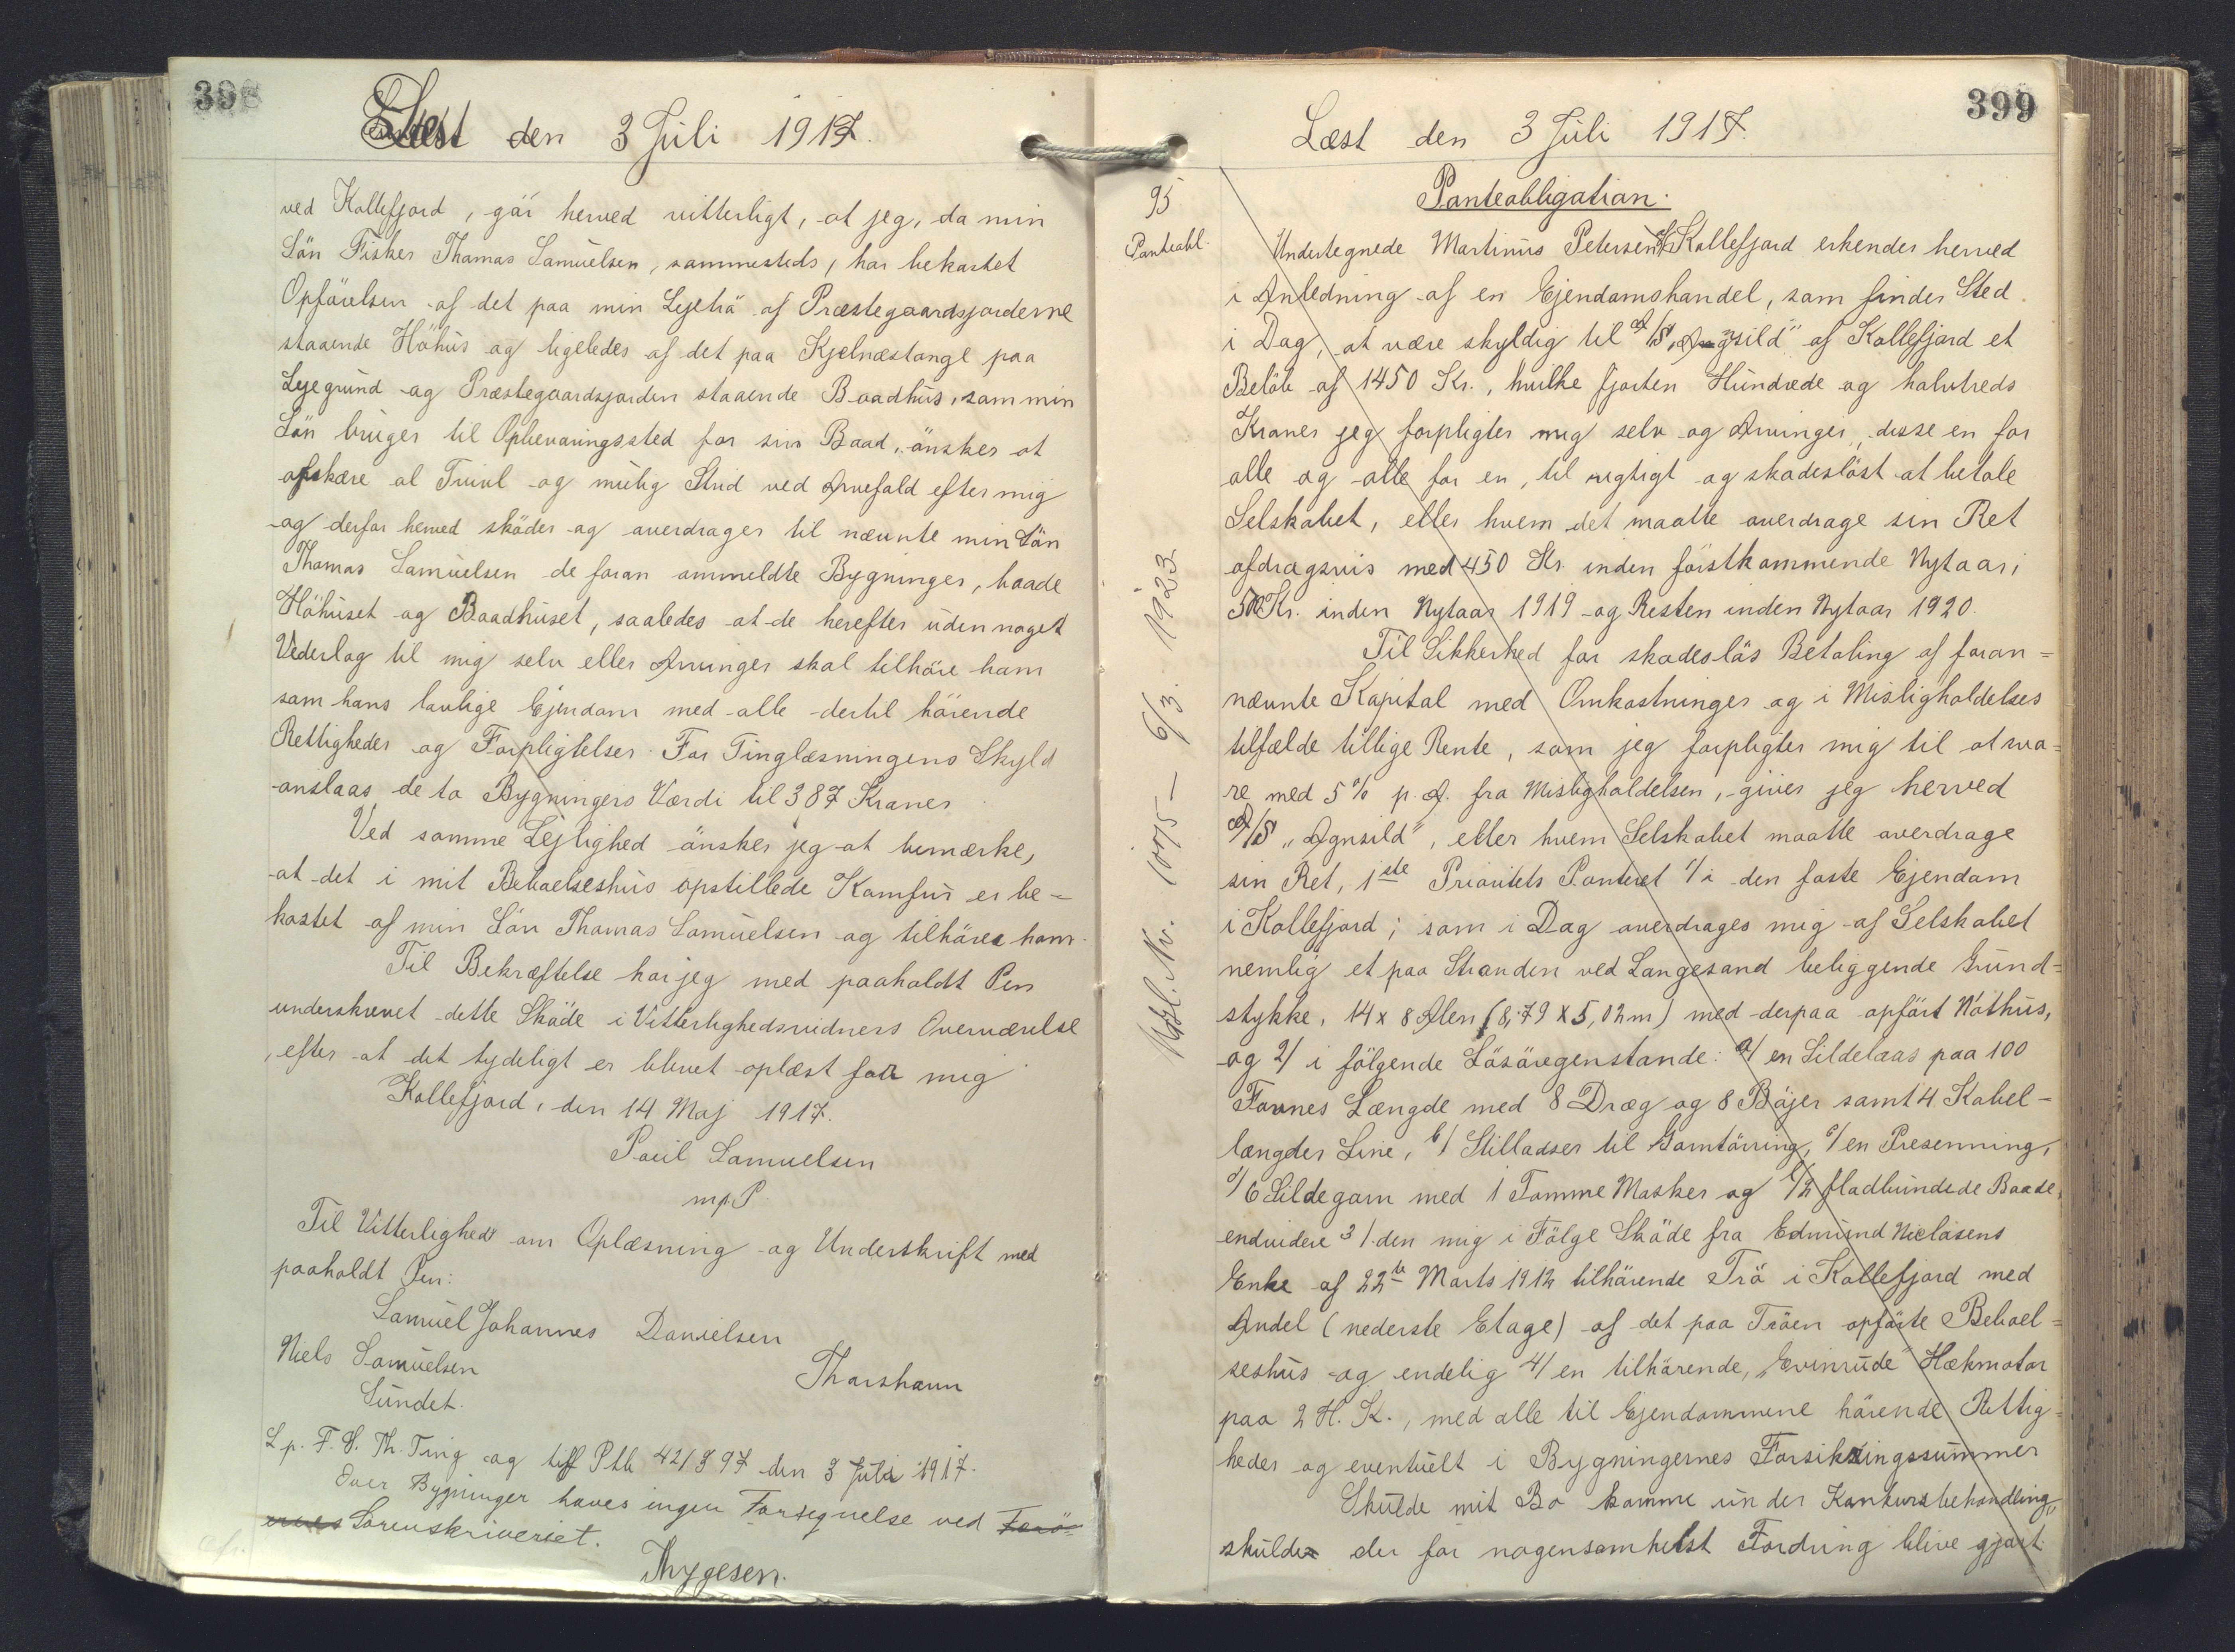 398
Læst den 3 Juli 1917.
ved Kollefjord, gör herved vitterligt, at jeg, da min
Sön Fisker Thomas Samuelsen, sammesteds, har bekostet
Opförelsen af det paa min Lejeträ af Præstegaardsjorderne
staaende Höhus og ligeledes af det paa Kjelnæstange paa
Lejegrund og Præstegaardsjorden staaende Baadhus, som min
Sön bruger til Opbevaringssted for sin Baad, önsker at
afskære al Tvivl og mulig Strid ved Arvefald efter mig
og derfor herved sköder og overdrager til nævnte min Sön
Thomas Samuelsen de foran ommeldte Bygninger, baade
Höhuset og Baadhuset, saaledes at de herefter uden noget
Vederlag til mig selv eller Arvinger skal tilhöre ham
som hans lovlige Ejendom med alle dertil hörende
Rettigheder og Forpligtelser. For Tinglæsningens Skyld
anslaas de to Bygningers Værdi til 387 Kroner.
Ved samme Lejlighed önsker jeg at bemærke,
at det i mit Beboelseshus opstillede Komfur er be-
kostet af min Sön Thomas Samuelsen og tilhörer ham.
Til Bekræftelse har jeg med paaholdt Pen
underskrevet dette Sköde i Vitterlighedsvidners Overværelse
, efter at det tydeligt er blevet oplæst for mig.
Kollefjord, den 14 Maj 1917.
Poul Samuelsen
m.p.P
Til Vitterlighed om Oplæsning og Underskrift med
paaholdt Pen:
Samuel Johannes Danielsen
Niels Samuelsen
Thorshavn
Sundet.
L p. F. V. Th. Ting og tilf Ptb 42/397 den 3 Juli 1917.
Over Bygninger haves ingen Fortegnelse ved Færö-
ernes Sorenskriveriet.
Thygesen.
399
Læst den 3 Juli 1917.
95
Panteobl.
Panteobligation.
Undertegnede Martinus Petersen af Kollefjord erkender herved
i Anledning af en Ejendomshandel, som finder Sted
i Dag, at være skyldig til A/S „Agnsild" af Kollefjord et
Belöb af 1450 Kr., hvilke fjorten Hundrede og halvtreds
Kroner jeg forpligter mig selv og Arvinger, disse en for
alle og alle for en, til rigtigt og skadeslöst at betale
Selskabet, eller hvem det maatte overdrage sin Ret
afdragsvis med 450 Kr. inden förstkommende Nytaar,
500 Kr. inden Nytaar 1919 og Resten inden Nytaar 1920.
Til Sikkerhed for skadeslös Betaling af foran-
nævnte Kapital med Omkostninger og i Misligholdelses
tilfælde tillige Rente, som jeg forpligter mig til at sva-
re med 5% p. A. fra Misligholdelsen, giver jeg herved
A/S „Agnsild", eller hvem Selskabet maatte overdrage
sin Ret, 1ste Prioritets Panteret 1/ i den faste Ejendom
i Kollefjord; som i Dag overdrages mig af Selskabet
nemlig et paa Stranden ved Langesand beliggende Grund-
stykke, 14 x 8 Alen (8,79 x 5,02 m) med derpaa opfört Nöthus,
og 2/ i fölgende Lösöregenstande: a/ en Sildelaas paa 100
Favnes Længde med 8 Dræg og 8 Böjer samt 4 Kabel-
længder Line, b/ Stilladser til Garntörring, c/ en Presenning,
d/ 6 Sildegarn med 1 Tomme Masker og e/ 2 fladbundede Baade,
endvidere 3/ den mig i Fölge Sköde fra Edmund Niclasens
Enke af 22de Marts 1912 tilhörende Trö i Kollefjord med
Andel (nederste Etage) af det paa Tröen opförte Beboel-
seshus og endelig 4/ en tilhörende, „Evinrude" Hækmotor
paa 2 H. K., med alle til Ejendommene hörende Rettig-
heder og eventuelt i Bygningernes Forsikringssummer
Skulde mit Bo komme under Konkursbehandling,
skulde der for nogensomhelst Fordring blive gjort
Udsl. Nr. 1075 – 6/3. 1923